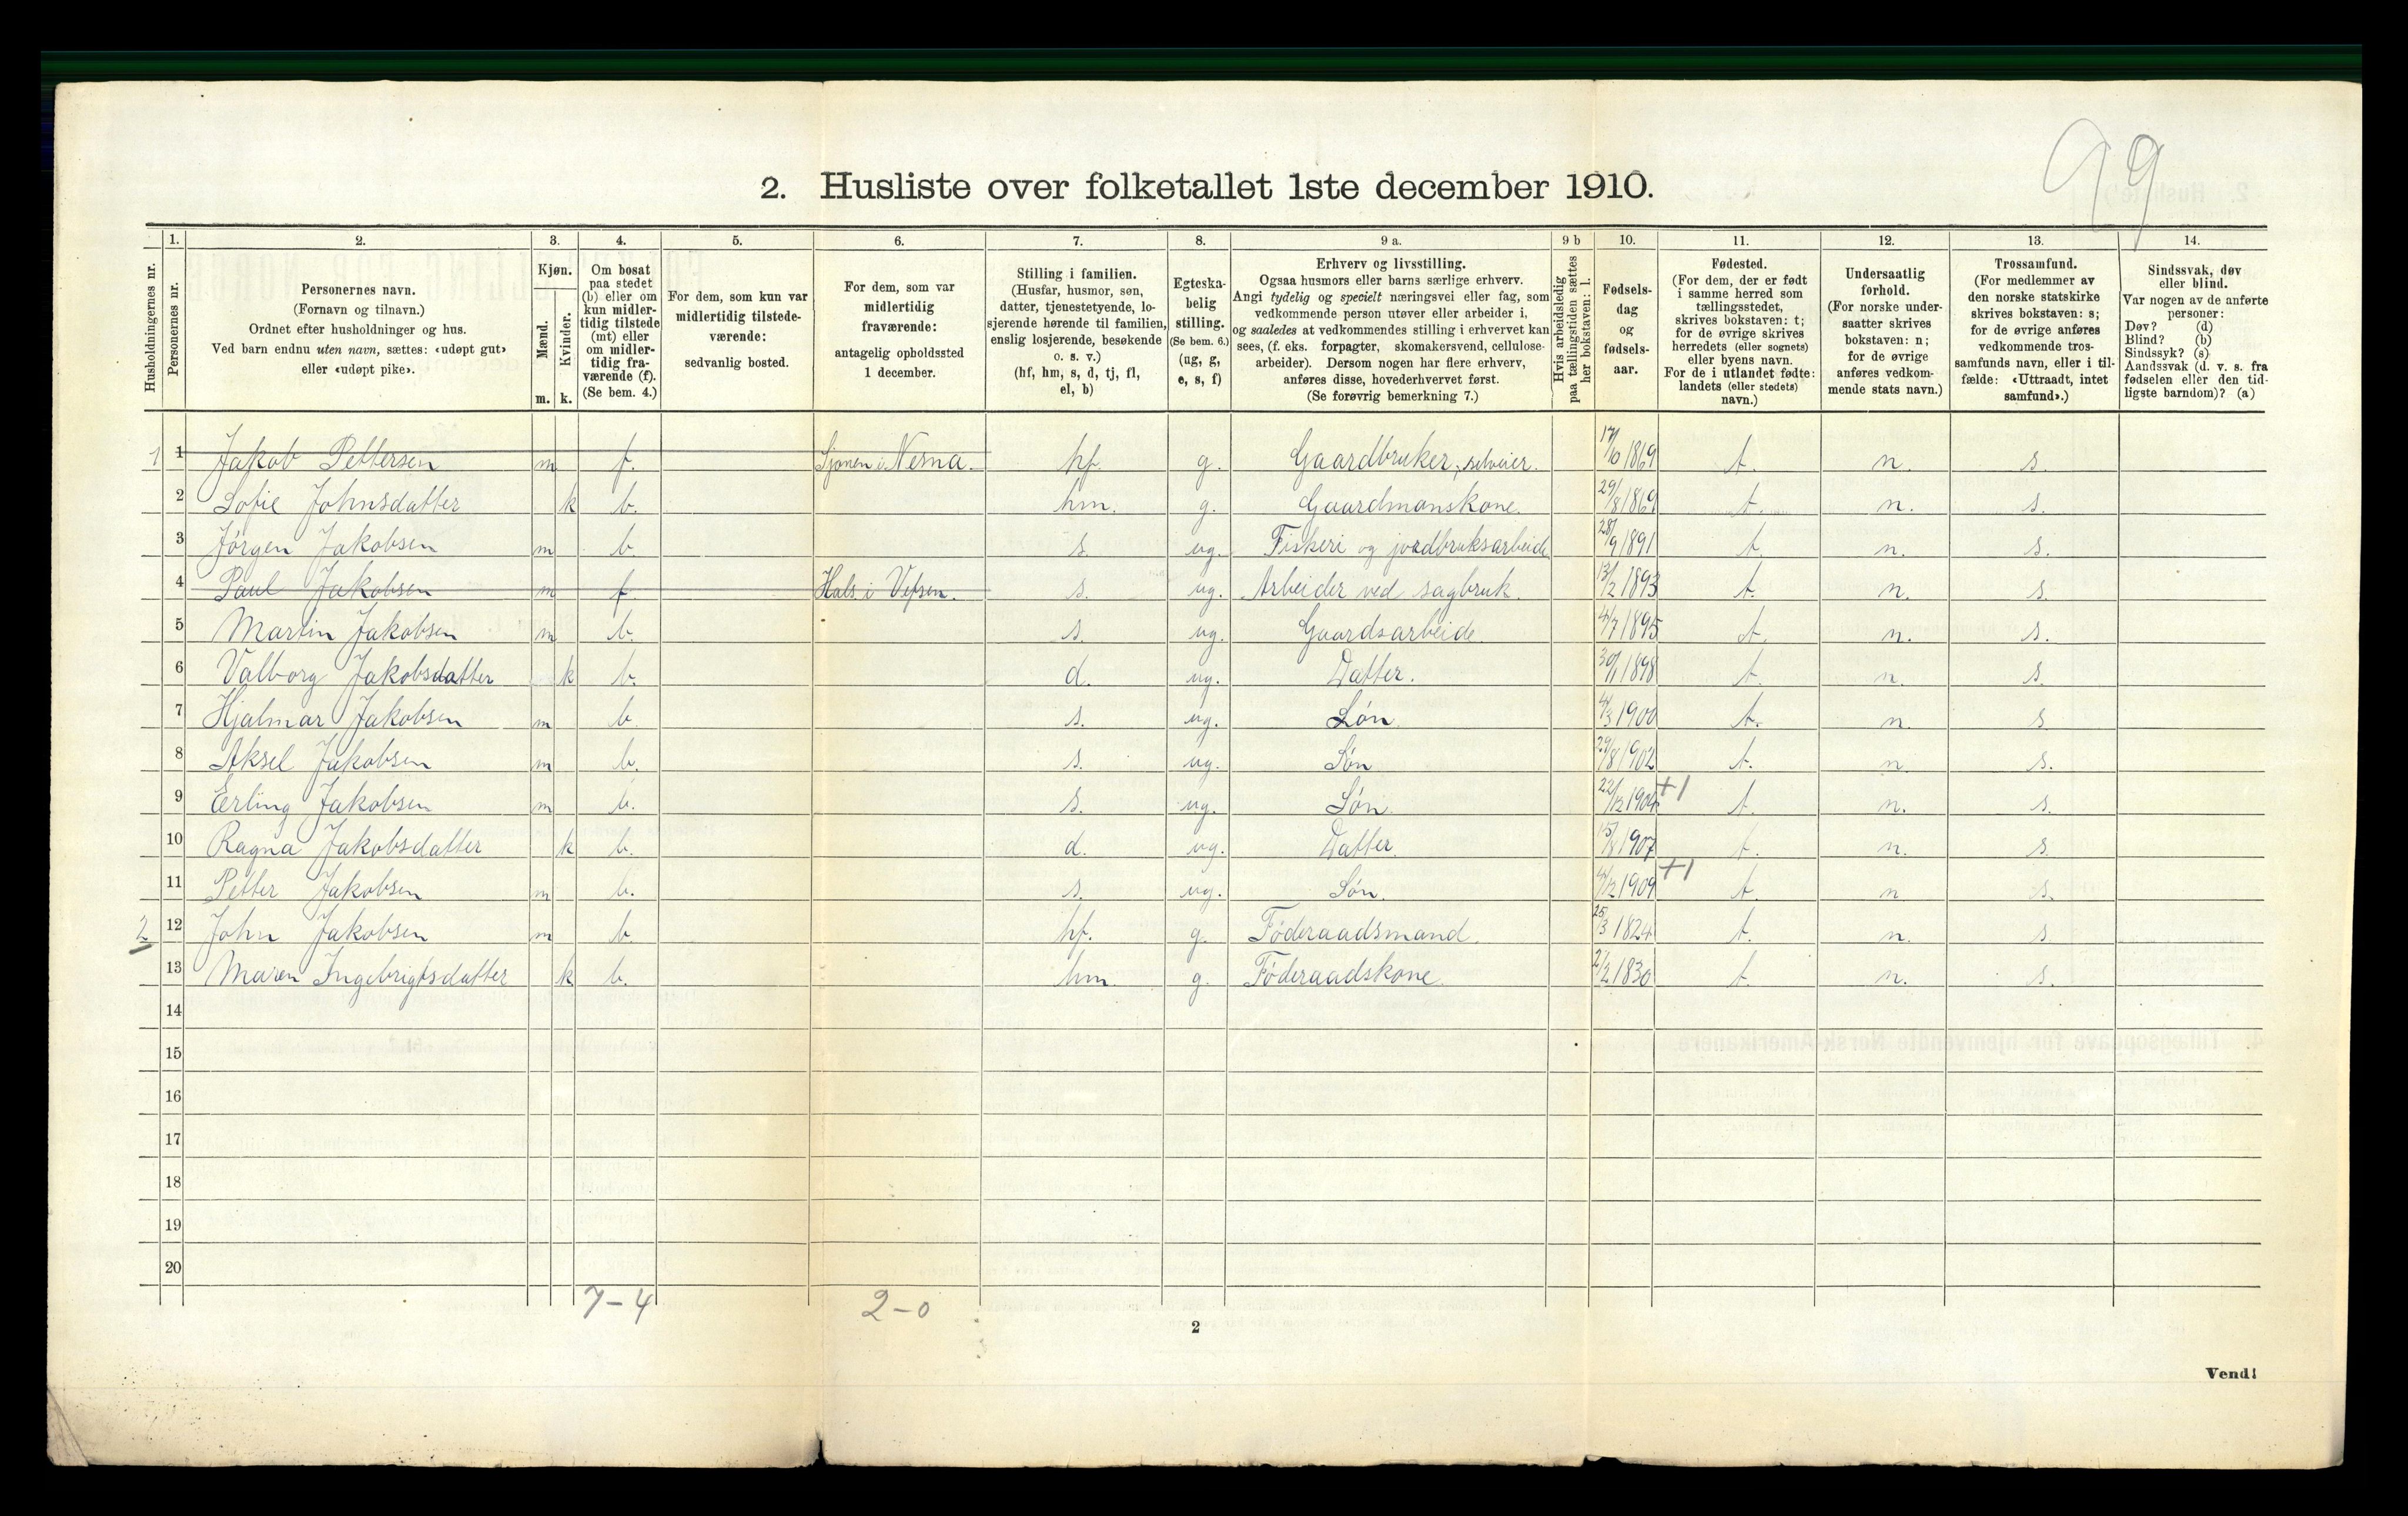 99
2. Husliste over folketallet 1ste december 1910.
Husholdningernes nr.
1. Personernes nr.
2. Personernes navn. (Fornavn og tilnavn.) Ordnet efter husholdninger og hus. Ved barn endnu uten navn, sættes: «udøpt gut» eller «udøpt pike».
3. Kjøn. Mænd. m. Kvinder. k.
4. Om bosat paa stedet (b) eller om kun midlertidig tilstede (mt) eller om midlertidig fraværende (f). (Se bem. 4.)
5. For dem, som kun var midlertidig tilstedeværende: sedvanlig bosted.
6. For dem, som var midlertidig fraværende: antagelig opholdssted 1 december.
7. Stilling i familien. (Husfar, husmor, søn, datter, tjenestetyende, losjerende hørende til familien, enslig losjerende, besøkende o. s. v.) (hf, hm, s, d, tj, fl, el, b)
8. Egteskabelig stilling. (Se bem. 6.) (ug, g, e, s, f)
9 a. Erhverv og livsstilling. Ogsaa husmors eller barns særlige erhverv. Angi tydelig og specielt næringsvei eller fag, som vedkommende person utøver eller arbeider i, og saaledes at vedkommendes stilling i erhvervet kan sees, (f. eks. forpagter, skomakersvend, cellulosearbeider). Dersom nogen har flere erhverv, anføres disse, hovederhvervet først. (Se forøvrig bemerkning 7.)
9 b Hvis arbeidsledig paa tællingstiden sættes her bokstaven: l.
10. Fødselsdag og fødselsaar.
11. Fødested. (For dem, der er født i samme herred som tællingsstedet, skrives bokstaven: t; for de øvrige skrives herredets (eller sognets) eller byens navn. For de i utlandet fødte: landets (eller stedets) navn.)
12. Undersaatlig forhold. (For norske undersaatter skrives bokstaven: n; for de øvrige anføres vedkommende stats navn.)
13. Trossamfund. (For medlemmer av den norske statskirke skrives bokstaven: s; for de øvrige anføres vedkommende trossamfunds navn, eller i tilfælde: «Uttraadt, intet samfund».)
14. Sindssvak, døv eller blind. Var nogen av de anførte personer: Døv? (d) Blind? (b) Sindssyk? (s) Aandssvak (d. v. s. fra fødselen eller den tidligste barndom)? (a)
1 1 Jakob Pettersen m f. Sjonen i Nesna. hf. g. Gaardbruker, selveier. 17/10 1869 t. n. s.
2 Sofie Johnsdatter k b. hm. g. Gaardmanskone. 29/8 1869 t. n. s.
3 Jörgen Jakobsen m b. s. ug. Fiskeri og jordbruksarbeide 28/9 1891 t. n. s.
4 Paul Jakobsen m f Hals i Vefsen. s. ug. Arbeider ved sagbruk. 13/2 1893 t. n. s.
5 Martin Jakobsen m b. s. ug. Gaardsarbeide 4/7 1895 t. n. s.
6 Valborg Jakobsdatter k b. d. ug. Datter. 30/1 1898 t. n. s.
7 Hjalmar Jakobsen m b. s. ug. Sön. 4/3 1900 t. n. s
8 Aksel Jakobsen m b. s. ug. Sön 29/8 1902 t. n. s.
9 Erling Jakobsen m b. s. ug. Sön. 22/12 1904 +1 t. n. s.
10 Ragna Jakobsdatter k b. d. ug. Datter. 1907 t. n. s.
11 Petter Jakobsen m b. s. ug. Sön. 4/12 1909 +1 t. n s.
2 12 John Jakobsen m b. hf. g. Föderaadsmand. 25/3 1824 t. n. s
13 Maren Ingebrigtsdatter k b. hm. g. Föderaadskone. 2/2 1830 t. n. s.
14
15
16
17
18
19
20
7-4 2-0
2
Vend!